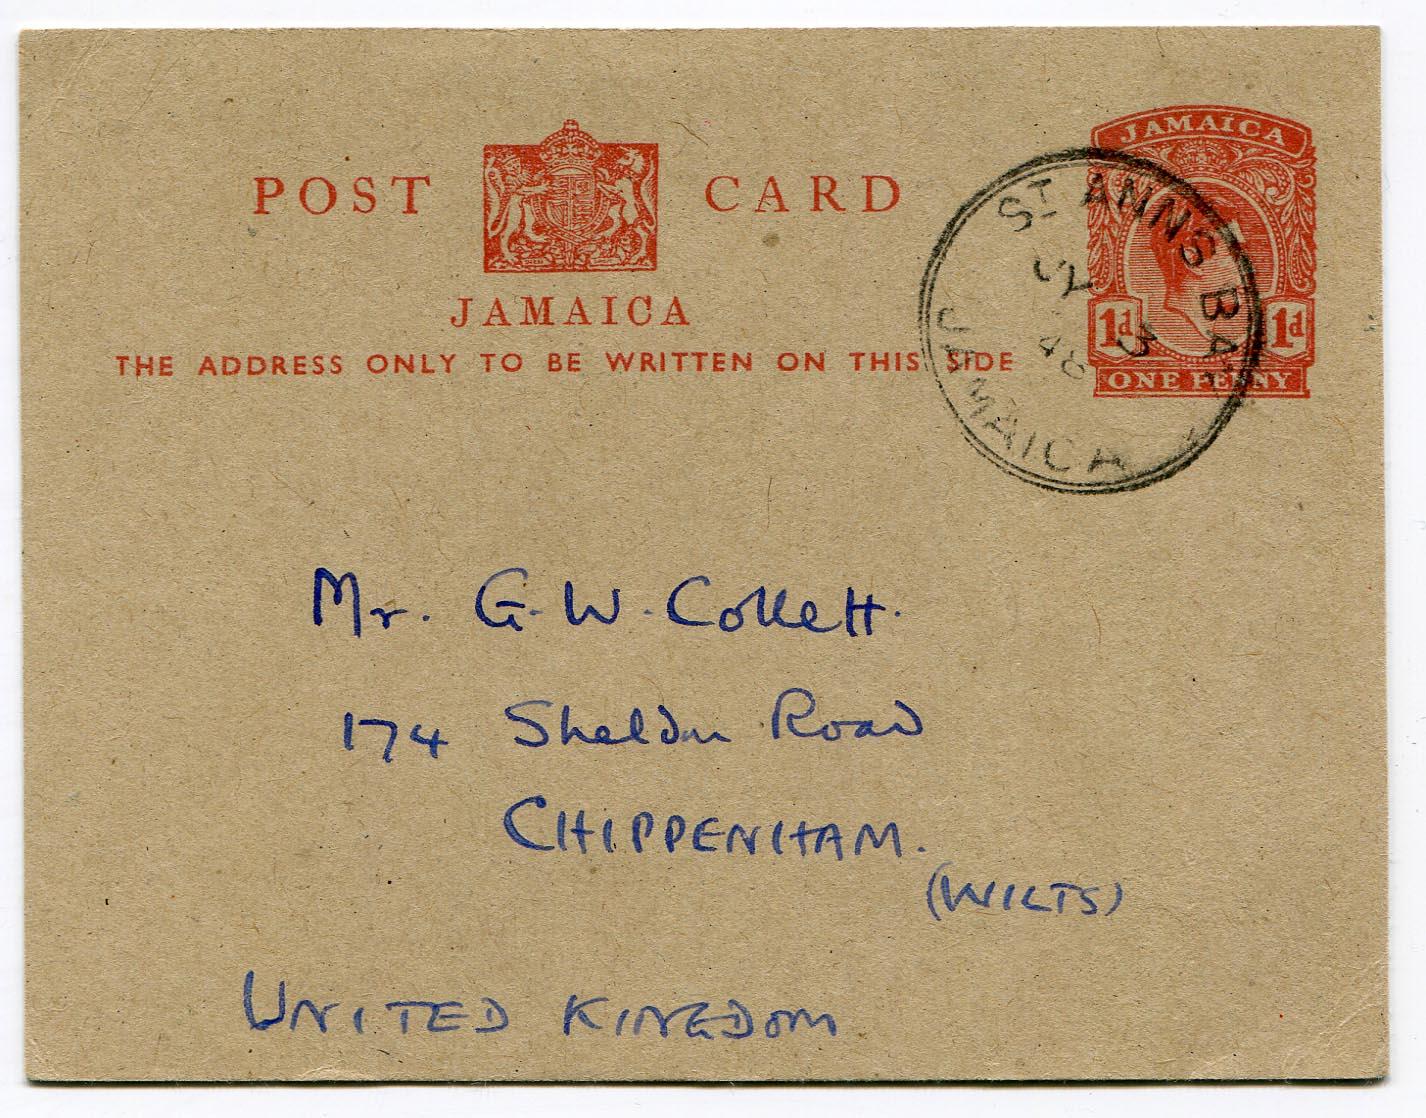 POST CARD
JAMAICA
THE ADDRESS ONLY TO BE WRITTEN ON THIS SIDE
JAMAICA
1d 1d
ONE PENNY
ST ANNS BAY
JY 3
48
JAMAICA
Mr. G. W. Collett.
174 Sheldon Road
CHIPPENHAM.
(WILTS)
UNITED KINGDOM